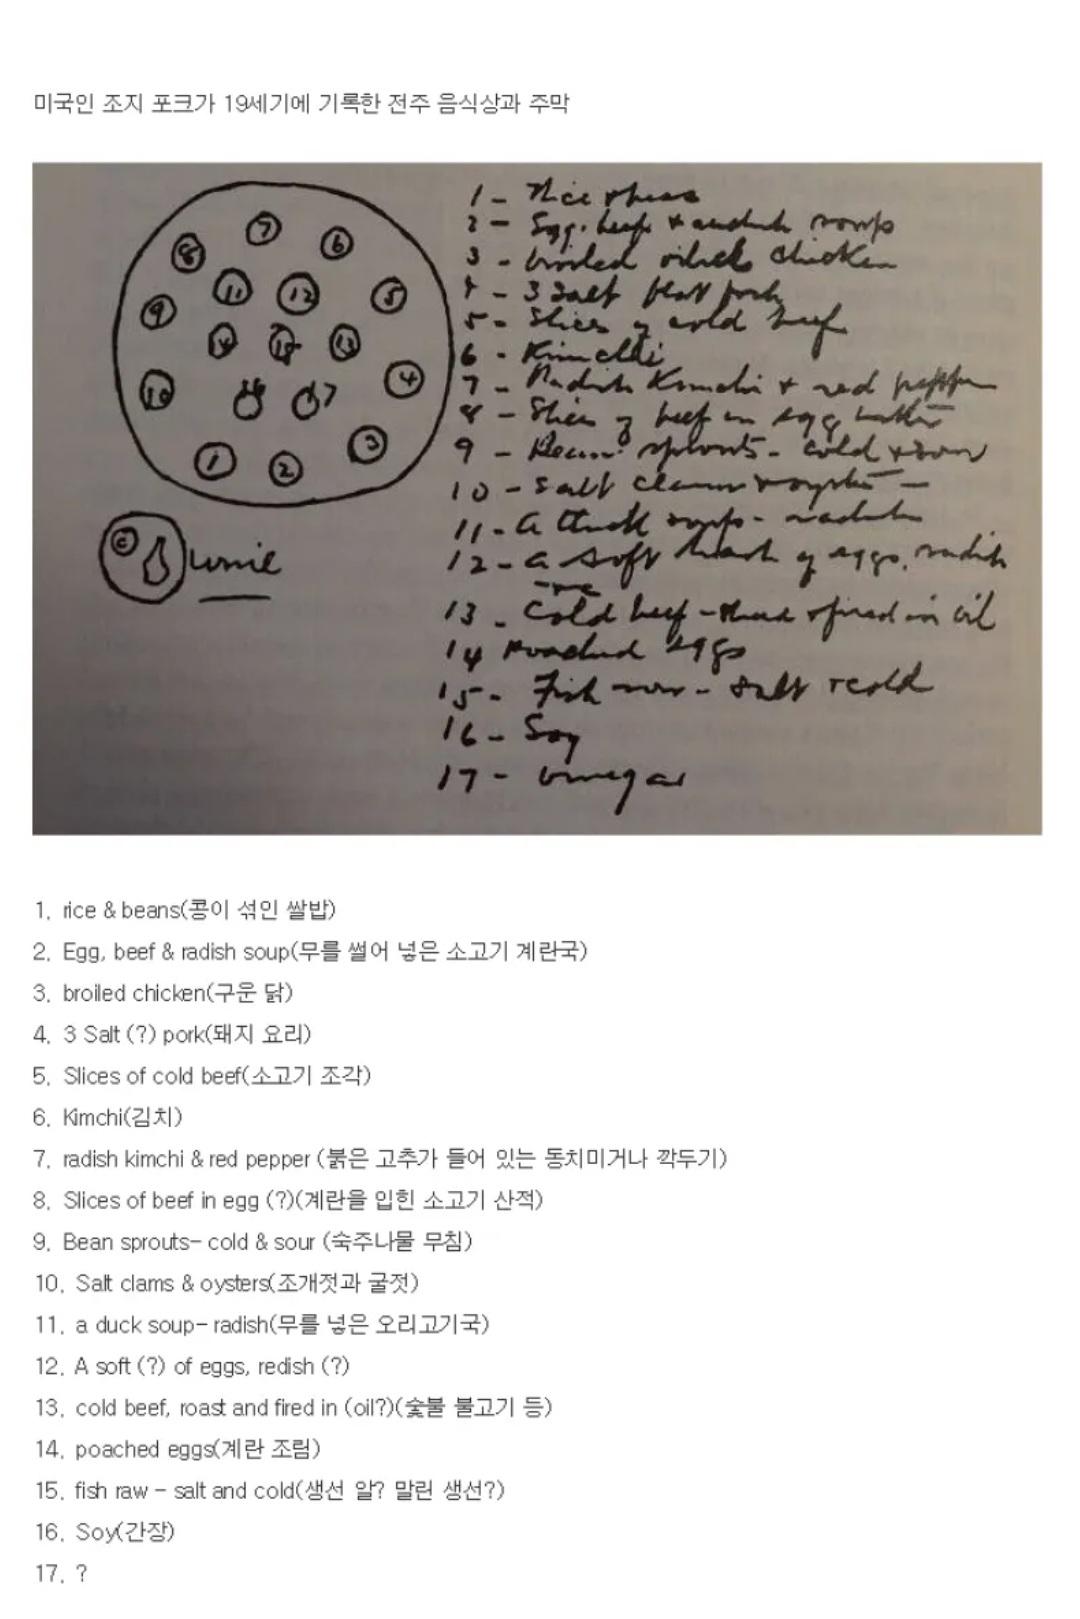 미국인 조지 포크가 19세기에 기록한 전주 음식상과 주막
7
8
6
11
12
5
9
14
15
13
10
16
17
4
1
2
3
wine
1 - Rice
2 - Egg, beef & radish soup
3 - broiled chicken
4 - 3 Salt pork
5 - Slices of cold beef
6 - Kimchi
7 - Radish Kimchi + red pepper
8 - Slices of beef in egg batter
9 - Bean sprouts - cold & sour
10 - Salt clams & oysters -
11 - a soup - radish
12 - a soft hash of eggs, radish
etc
13 - Cold beef - fried in oil
14 Poached eggs
15 - Fish - salt & cold
16 - Soy
17 - Vinegar
1. rice & beans(콩이 섞인 쌀밥)
2. Egg, beef & radish soup(무를 썰어 넣은 소고기 계란국)
3. broiled chicken(구운 닭)
4. 3 Salt (?) pork(돼지 요리)
5. Slices of cold beef(소고기 조각)
6. Kimchi(김치)
7. radish kimchi & red pepper (붉은 고추가 들어 있는 동치미거나 깍두기)
8. Slices of beef in egg (?)(계란을 입힌 소고기 산적)
9. Bean sprouts- cold & sour (숙주나물 무침)
10. Salt clams & oysters(조개젓과 굴젓)
11. a duck soup- radish(무를 넣은 오리고기국)
12. A soft (?) of eggs, redish (?)
13. cold beef, roast and fired in (oil?)(숯불 불고기 등)
14. poached eggs(계란 조림)
15. fish raw - salt and cold(생선 알? 말린 생선?)
16. Soy(간장)
17. ?